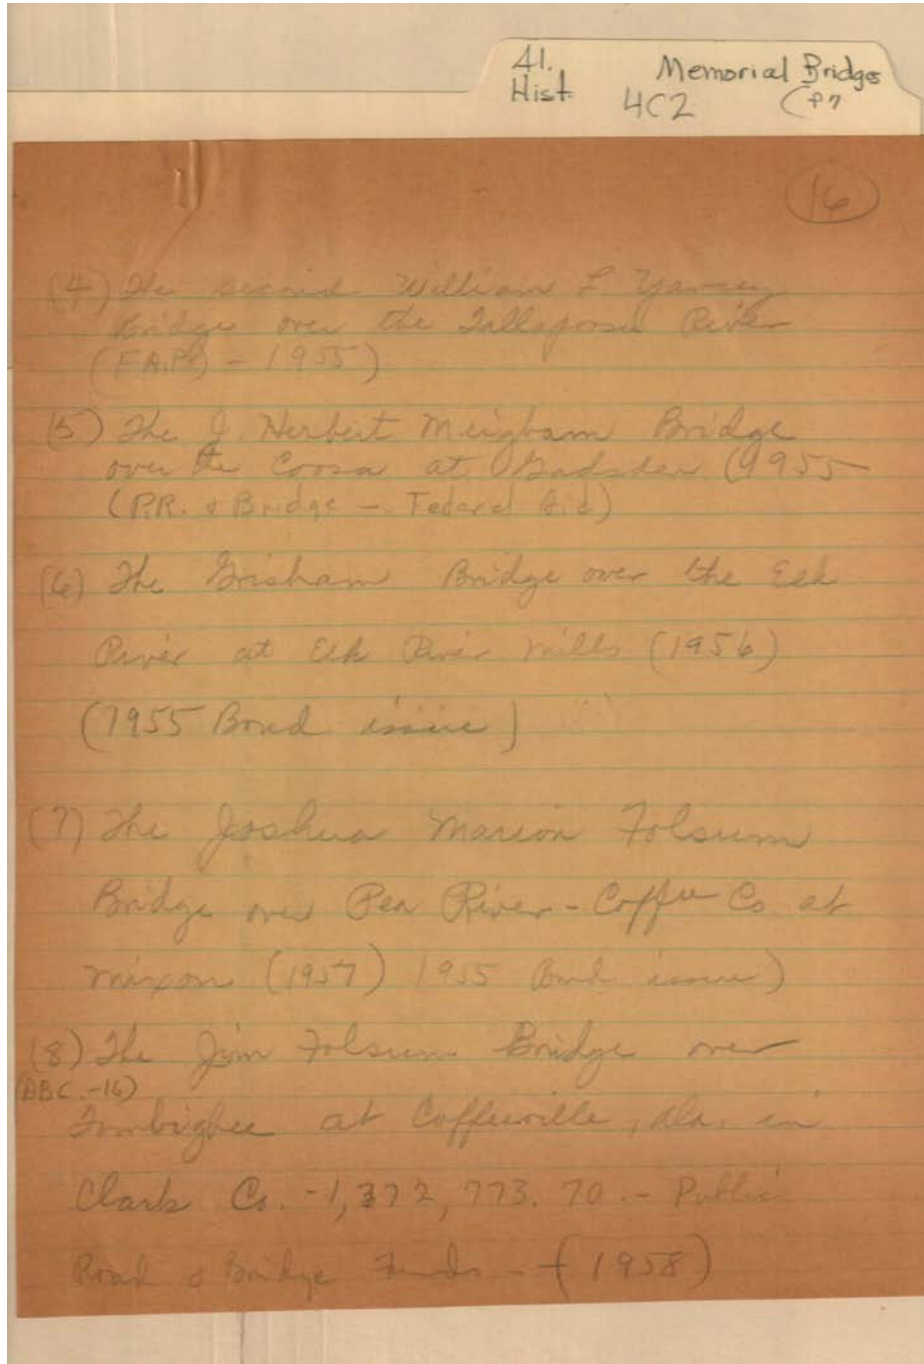 41. Memorial Bridges
Hist. 4C2 (P7
16
(4) The second William L Yancey
Bridge over the Tallapoosa River
(F.A.P.) - 1955)
(5) The J. Herbert Meigham Bridge
over the Coosa at Gadsden (1955
(P.R. & Bridge - Federal Aid)
(6) The Grisham Bridge over the Elk
River at Elk River Mills (1956)
(1955 Bond issue)
(7) The Joshua Marion Folsum
Bridge over Pea River - Coffee Co at
Mixon (1957) 1955 Bond issue)
(8) The Jim Folsum Bridge over
(ABC.-16)
Tombigbee at Coffeeville, Ala. in
Clark Co. - 1,372,773.70 - Public
Road & Bridge Funds - (1958)